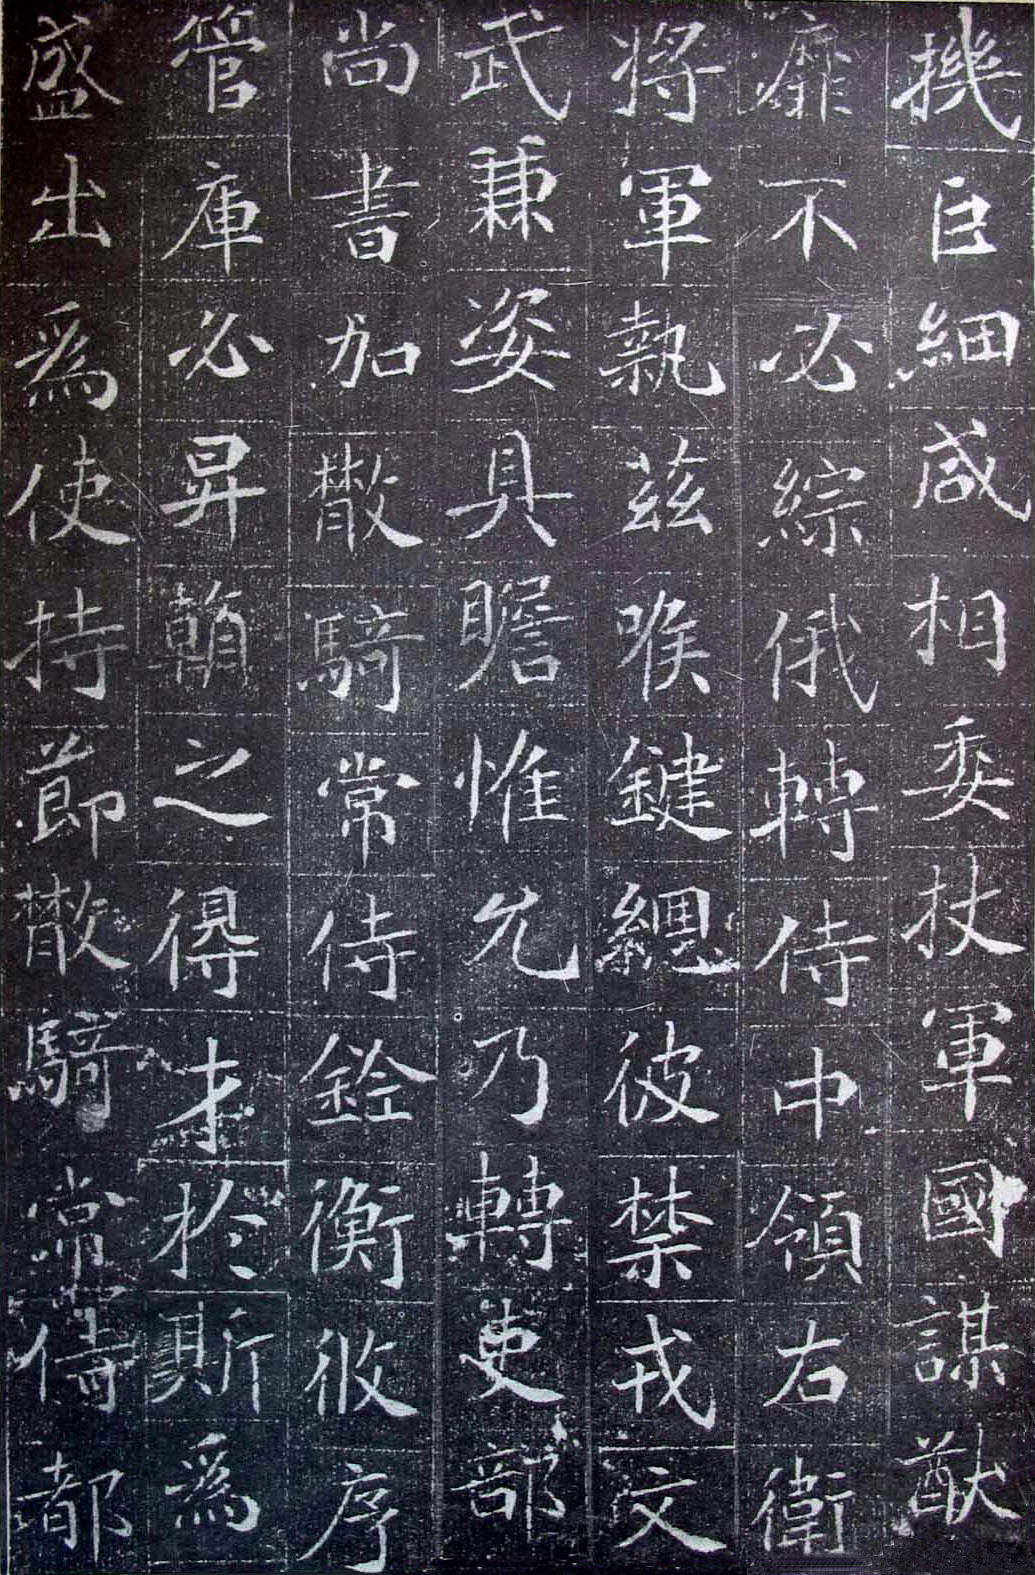 機巨細咸相委杖軍國謀猷
靡不必綜俄轉侍中領右衛
將軍執茲喉鍵總彼禁戎文
武兼姿具瞻惟允乃轉吏部
尚書加散騎常侍銓衡攸序
管庫必昇頼之得才於斯為
盛出為使持節散騎常侍都